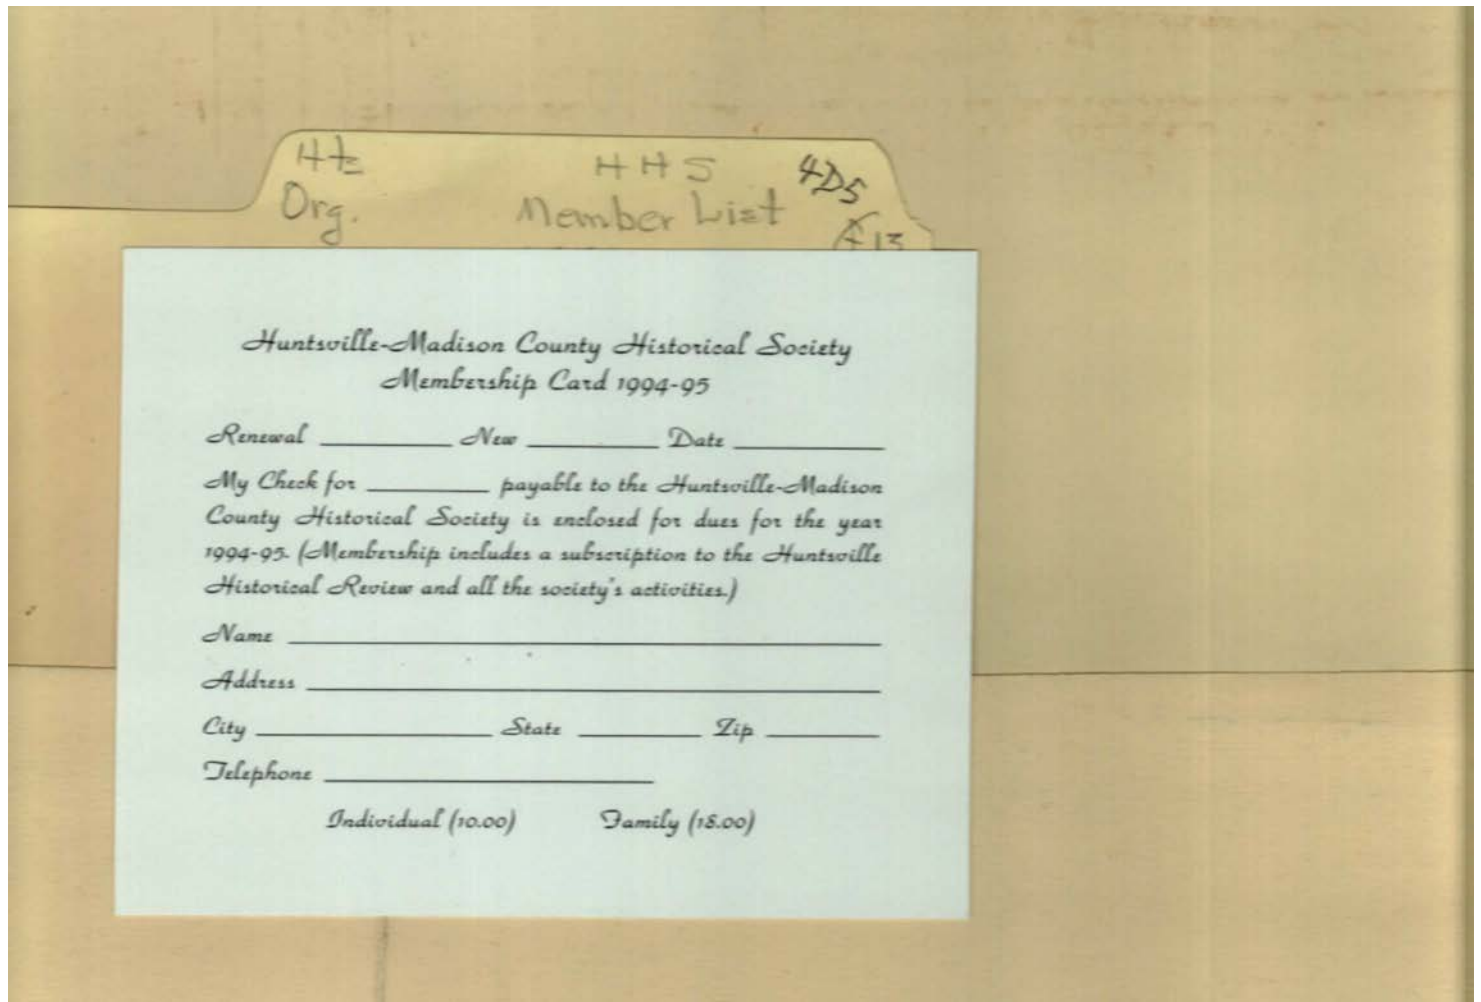 Hts HHS 4D5
Org. Member List
F13
Huntsville-Madison County Historical Society
Membership Card 1994-95
Renewal ____ New ____ Date ____
My Check for ____ payable to the Huntsville-Madison
County Historical Society is enclosed for dues for the year
1994-95. (Membership includes a subscription to the Huntsville
Historical Review and all the society's activities.)
Name ____
Address ____
City ____ State ____ Zip ____
Telephone ____
Individual (10.00) Family (18.00)